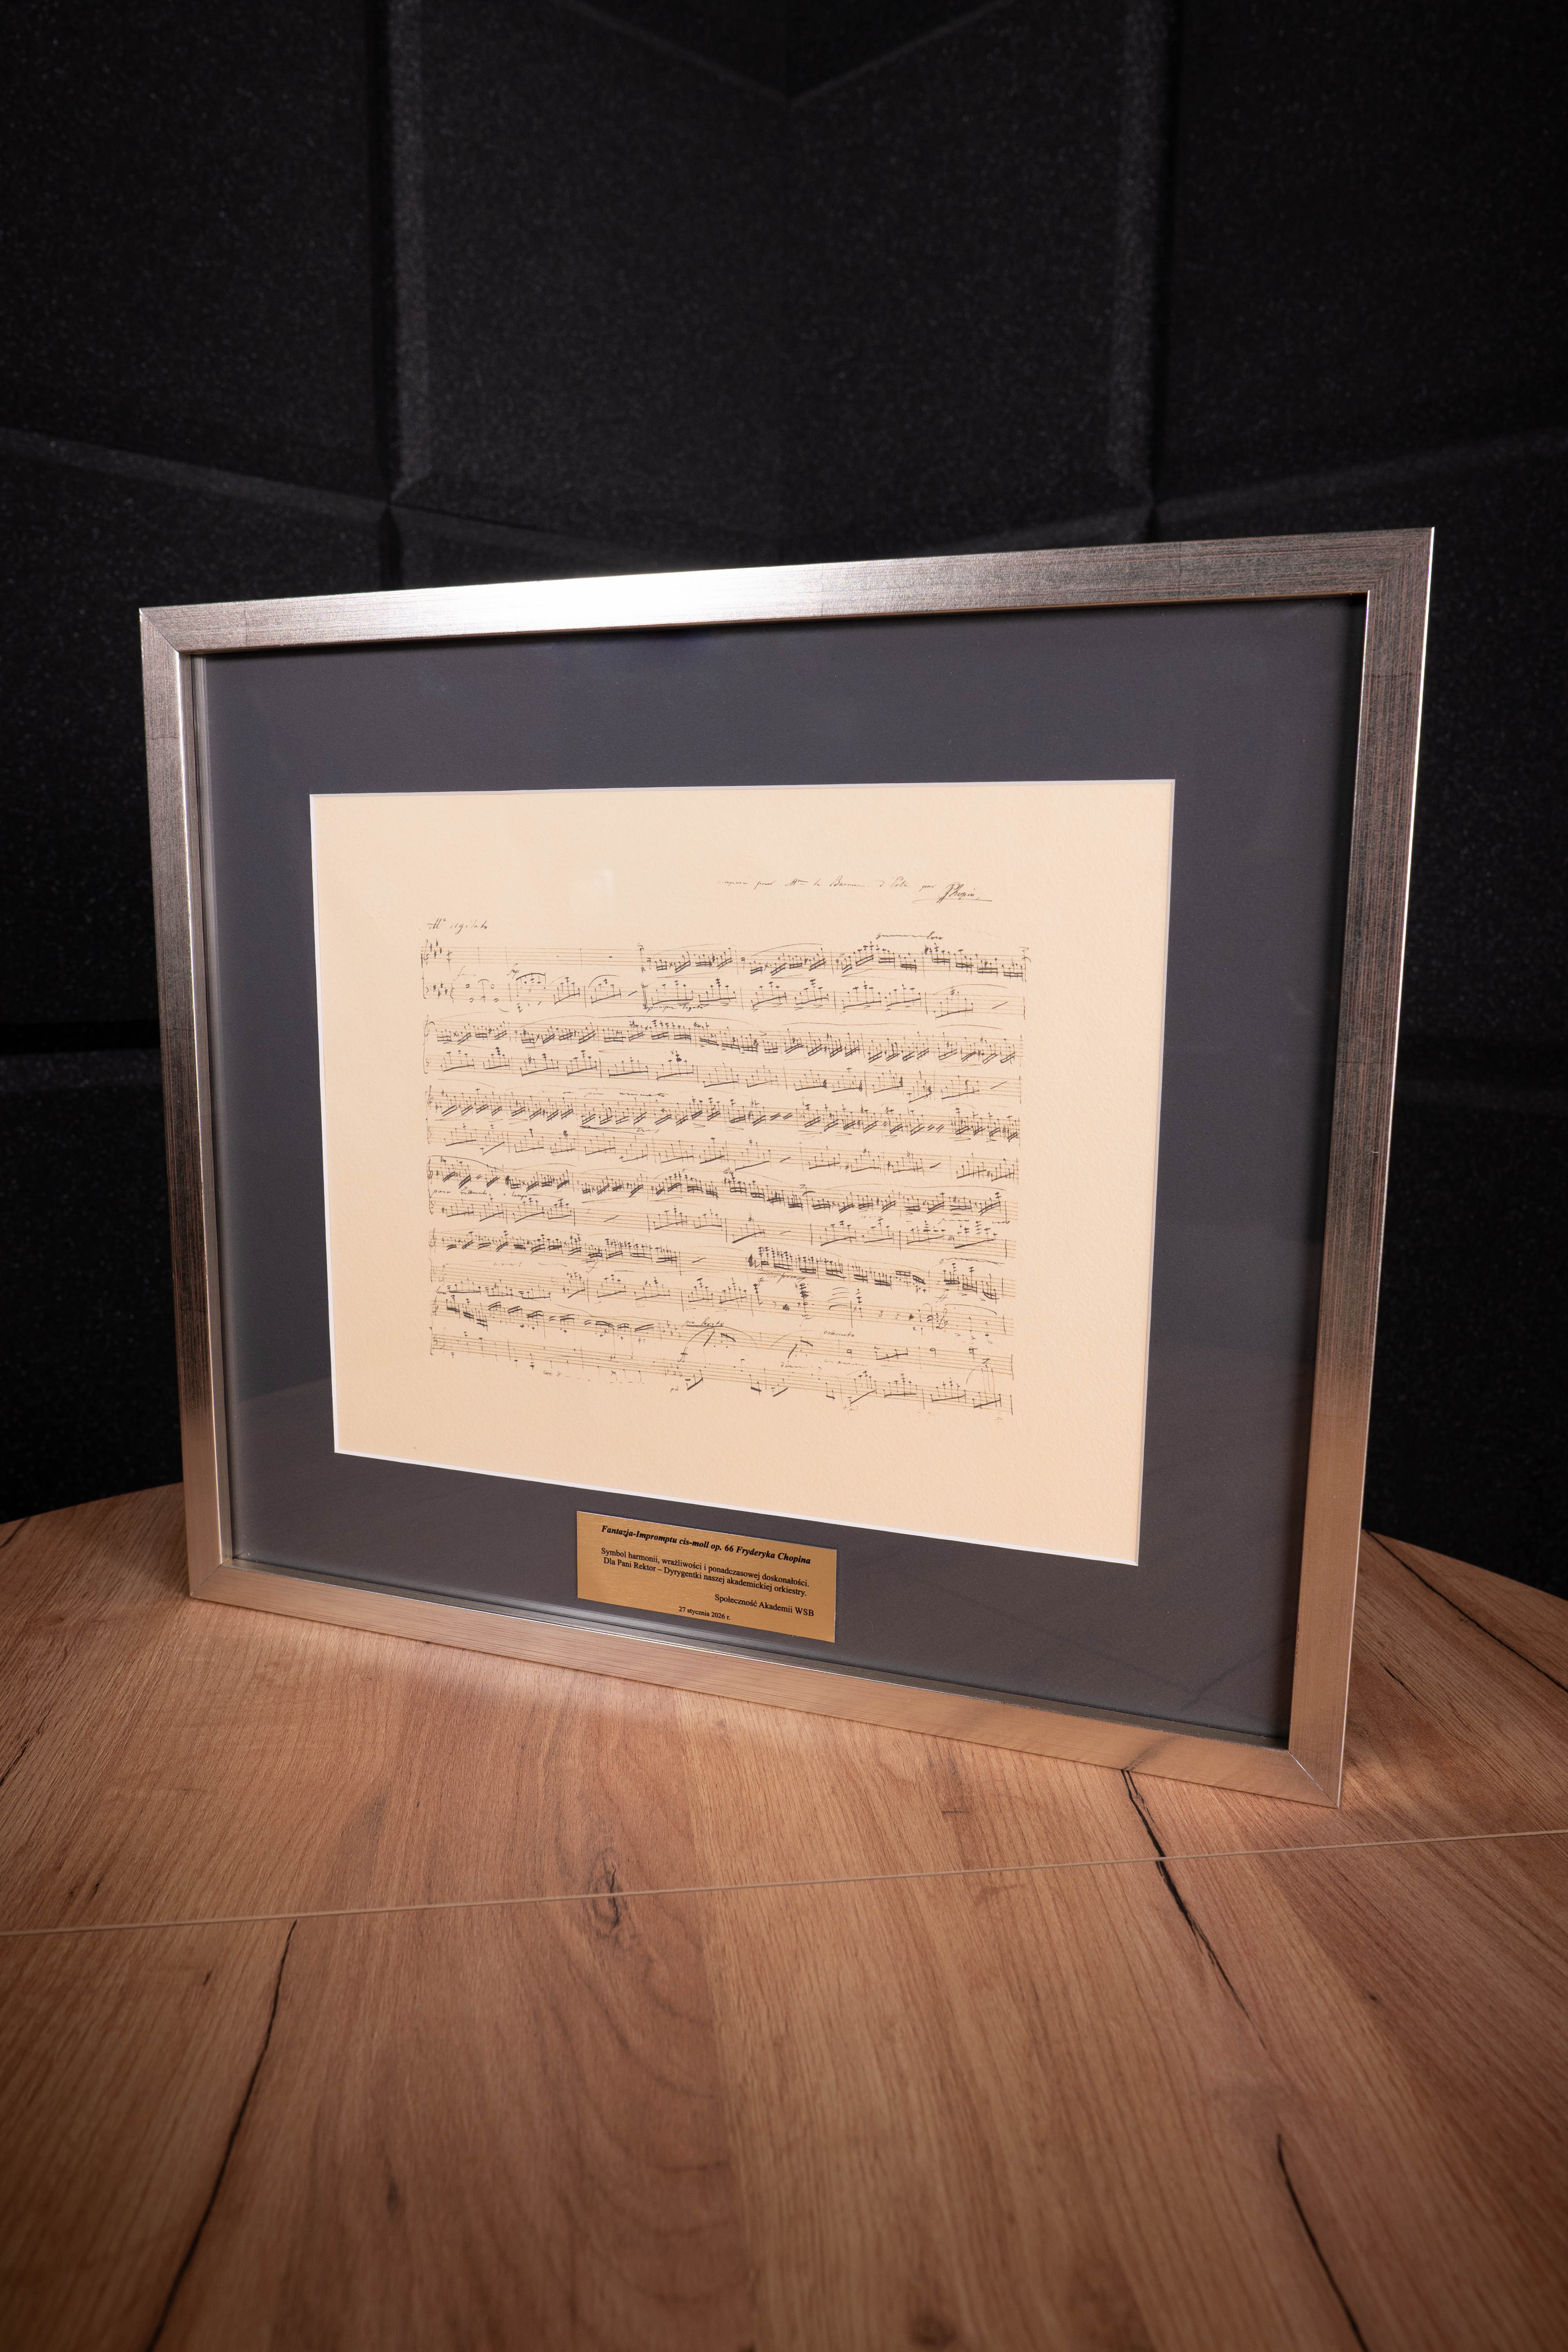 composé pour Mme la Baronne d'Este par FChopin
All° agitato
Fantazja-Impromptu cis-moll op. 66 Fryderyka Chopina
Symbol harmonii, wrażliwości i ponadczasowej doskonałości.
Dla Pani Rektor – Dyrygentki naszej akademickiej orkiestry.
Społeczność Akademii WSB
27 stycznia 2026 r.